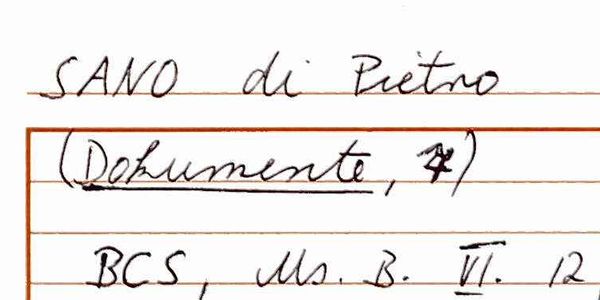 SANO di Pietro
(Dokumente, 4)
BCS, Ms. B. VI. 12,